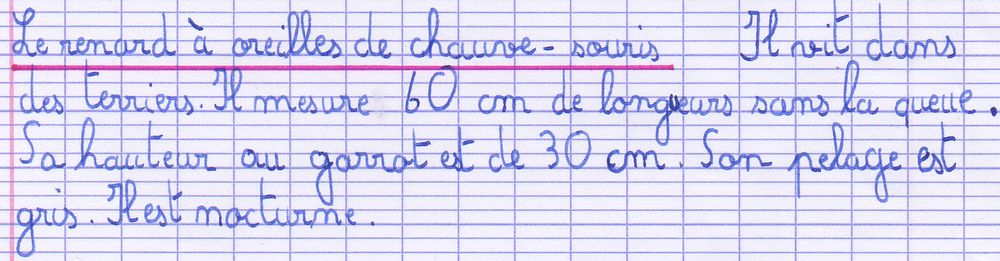 Le renard à oreilles de chauve-souris Il vit dans
des terriers. Il mesure 60 cm de longueurs sans la queue.
Sa hauteur au garrot est de 30 cm. Son pelage est
gris. Il est nocturne.